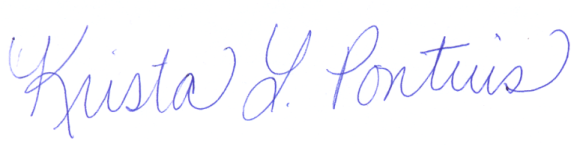 Krista L. Pontius